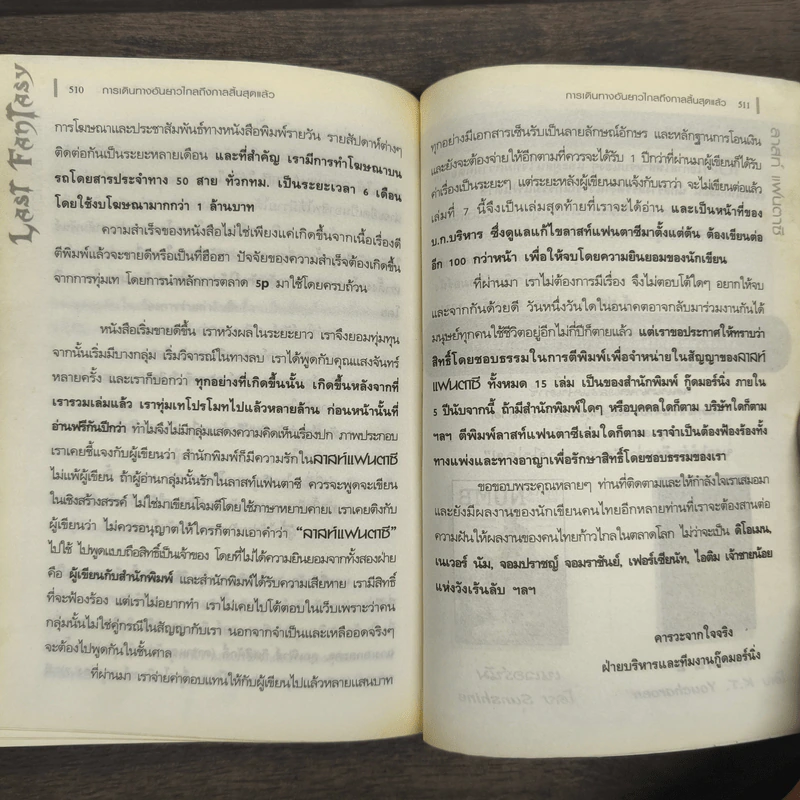 LAST FANTASY
510 การเดินทางอันยาวไกลถึงกาลสิ้นสุดแล้ว
การโฆษณาและประชาสัมพันธ์ทางหนังสือพิมพ์รายวัน รายสัปดาห์ต่างๆ
ติดต่อกันเป็นระยะหลายเดือน และที่สำคัญ เรามีการทำโฆษณาบน
รถโดยสารประจำทาง 50 สาย ทั่วกทม. เป็นระยะเวลา 6 เดือน
โดยใช้งบโฆษณามากกว่า 1 ล้านบาท
ความสำเร็จของหนังสือไม่ใช่เพียงแค่เกิดขึ้นจากเนื้อเรื่องดี
ตีพิมพ์แล้วจะขายดีหรือเป็นที่ฮือฮา ปัจจัยของความสำเร็จต้องเกิดขึ้น
จากการทุ่มเท โดยการนำหลักการตลาด 5p มาใช้โดยครบถ้วน
หนังสือเริ่มขายดีขึ้น เราหวังผลในระยะยาว เราจึงยอมทุ่มทุน
จากนั้นเริ่มมีบางกลุ่ม เริ่มวิจารณ์ในทางลบ เราได้พูดกับคุณแสงจันทร์
หลายครั้ง และเราก็บอกว่า ทุกอย่างที่เกิดขึ้นนั้น เกิดขึ้นหลังจากที่
เรารวมเล่มแล้ว เราทุ่มเทโปรโมทไปแล้วหลายล้าน ก่อนหน้านั้นที่
อ่านฟรีกันปีกว่า ทำไมจึงไม่มีกลุ่มแสดงความคิดเห็นเรื่องปก ภาพประกอบ
เราเคยชี้แจงกับผู้เขียนว่า สำนักพิมพ์ก็มีความรักในลาสท์แฟนตาซี
ไม่แพ้ผู้เขียน ถ้าผู้อ่านกลุ่มนั้นรักในลาสท์แฟนตาซี ควรจะพูดจะเขียน
ในเชิงสร้างสรรค์ ไม่ใช่มาเขียนโจมตีโดยใช้ภาษาหยาบคาย เราเคยติงกับ
ผู้เขียนว่า ไม่ควรอนุญาตให้ใครก็ตามเอาคำว่า “ลาสท์แฟนตาซี”
ไปใช้ ไปพูดแบบถือสิทธิ์เป็นเจ้าของ โดยที่ไม่ได้ความยินยอมจากทั้งสองฝ่าย
คือ ผู้เขียนกับสำนักพิมพ์ และสำนักพิมพ์ได้รับความเสียหาย เรามีสิทธิ์
ที่จะฟ้องร้อง แต่เราไม่อยากทำ เราไม่เคยไปโต้ตอบในเว็บเพราะว่าคน
กลุ่มนั้นไม่ใช่คู่กรณีในสัญญากับเรา นอกจากจำเป็นและเหลืออดจริงๆ
จะต้องไปพูดกันในชั้นศาล
ที่ผ่านมา เราจ่ายค่าตอบแทนให้กับผู้เขียนไปแล้วหลายแสนบาท
การเดินทางอันยาวไกลถึงกาลสิ้นสุดแล้ว 511
ลาสท์ แฟนตาซี
ทุกอย่างมีเอกสารเซ็นรับเป็นลายลักษณ์อักษร และหลักฐานการโอนเงิน
และยังจะต้องจ่ายให้อีกตามที่ควรจะได้รับ 1 ปีกว่าที่ผ่านมาผู้เขียนก็ได้รับ
ค่าเรื่องเป็นระยะๆ แต่ระยะหลังผู้เขียนมาแจ้งกับเราว่า จะไม่เขียนต่อแล้ว
เล่มที่ 7 นี้จึงเป็นเล่มสุดท้ายที่เราจะได้อ่าน และเป็นหน้าที่ของ
บ.ก.บริหาร ซึ่งดูแลแก้ไขลาสท์แฟนตาซีมาตั้งแต่ต้น ต้องเขียนต่อ
อีก 100 กว่าหน้า เพื่อให้จบโดยความยินยอมของนักเขียน
ที่ผ่านมา เราไม่ต้องการมีเรื่อง จึงไม่ตอบโต้ใดๆ อยากให้จบ
และจากกันด้วยดี วันหนึ่งวันใดในอนาคตอาจกลับมาร่วมงานกันได้
มนุษย์ทุกคนใช้ชีวิตอยู่อีกไม่กี่ปีก็ตายแล้ว แต่เราขอประกาศให้ทราบว่า
สิทธิ์โดยชอบธรรมในการตีพิมพ์เพื่อจำหน่ายในสัญญาของลาสท์
แฟนตาซี ทั้งหมด 15 เล่ม เป็นของสำนักพิมพ์ กู๊ดมอร์นิ่ง ภายใน
5 ปีนับจากนี้ ถ้ามีสำนักพิมพ์ใดๆ หรือบุคคลใดก็ตาม บริษัทใดก็ตาม
ฯลฯ ตีพิมพ์ลาสท์แฟนตาซีเล่มใดก็ตาม เราจำเป็นต้องฟ้องร้องทั้ง
ทางแพ่งและทางอาญาเพื่อรักษาสิทธิ์โดยชอบธรรมของเรา
ขอขอบพระคุณหลายๆ ท่านที่ติดตามและให้กำลังใจเราเสมอมา
และยังมีผลงานของนักเขียนคนไทยอีกหลายท่านที่เราจะต้องสานต่อ
ความฝันให้ผลงานของคนไทยก้าวไกลในตลาดโลก ไม่ว่าจะเป็น ดิโอเมน,
เนเวอร์ นัม, จอมปราชญ์ จอมราชันย์, เฟอร์เซียนัท, ไอติม เจ้าชายน้อย
แห่งวังเร้นลับ ฯลฯ
คารวะจากใจจริง
ฝ่ายบริหารและทีมงานกู๊ดมอร์นิ่ง